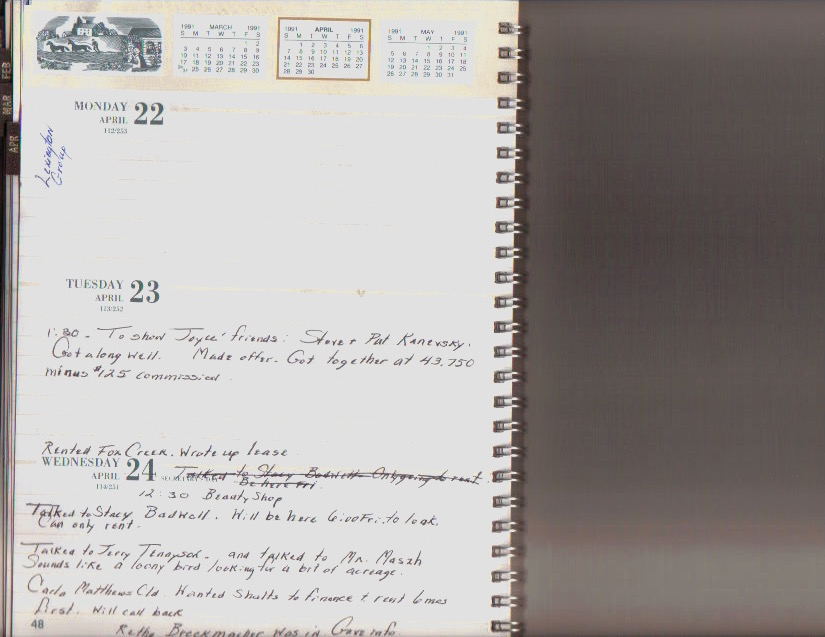 1991 MARCH 1991
S M T W T F S
1 2
3 4 5 6 7 8 9
10 11 12 13 14 15 16
17 18 19 20 21 22 23
24/31 25 26 27 28 29 30
1991 APRIL 1991
S M T W T F S
1 2 3 4 5 6
7 8 9 10 11 12 13
14 15 16 17 18 19 20
21 22 23 24 25 26 27
28 29 30
1991 MAY 1991
S M T W T F S
1 2 3 4
5 6 7 8 9 10 11
12 13 14 15 16 17 18
19 20 21 22 23 24 25
26 27 28 29 30 31
FEB
MAR
APR
MONDAY 22
APRIL
112/253
Lexington
Group
TUESDAY 23
APRIL
113/252
1:30 - To show Joyce' friends: Steve & Pat Kanevsky.
Got along well. Made offer. Got together at 43,750
minus $125 commission.
Rented Fox Creek. Wrote up lease
WEDNESDAY 24
APRIL
114/251
Talked to Stacy Badwell - Only going to rent.
Be here Fri.
12:30 Beauty Shop
Talked to Stacy Badwell. Will be here 6:00 Fri. to look.
Can only rent.
Talked to Jerry Tennyson - and talked to Mr. Maszh
Sounds like a loony bird looking for a bit of acreage.
Carla Matthews Cld. Wanted Shults to finance & rent 6 mos
first. Will call back
48
Retha Breckmacher was in. Gave info.